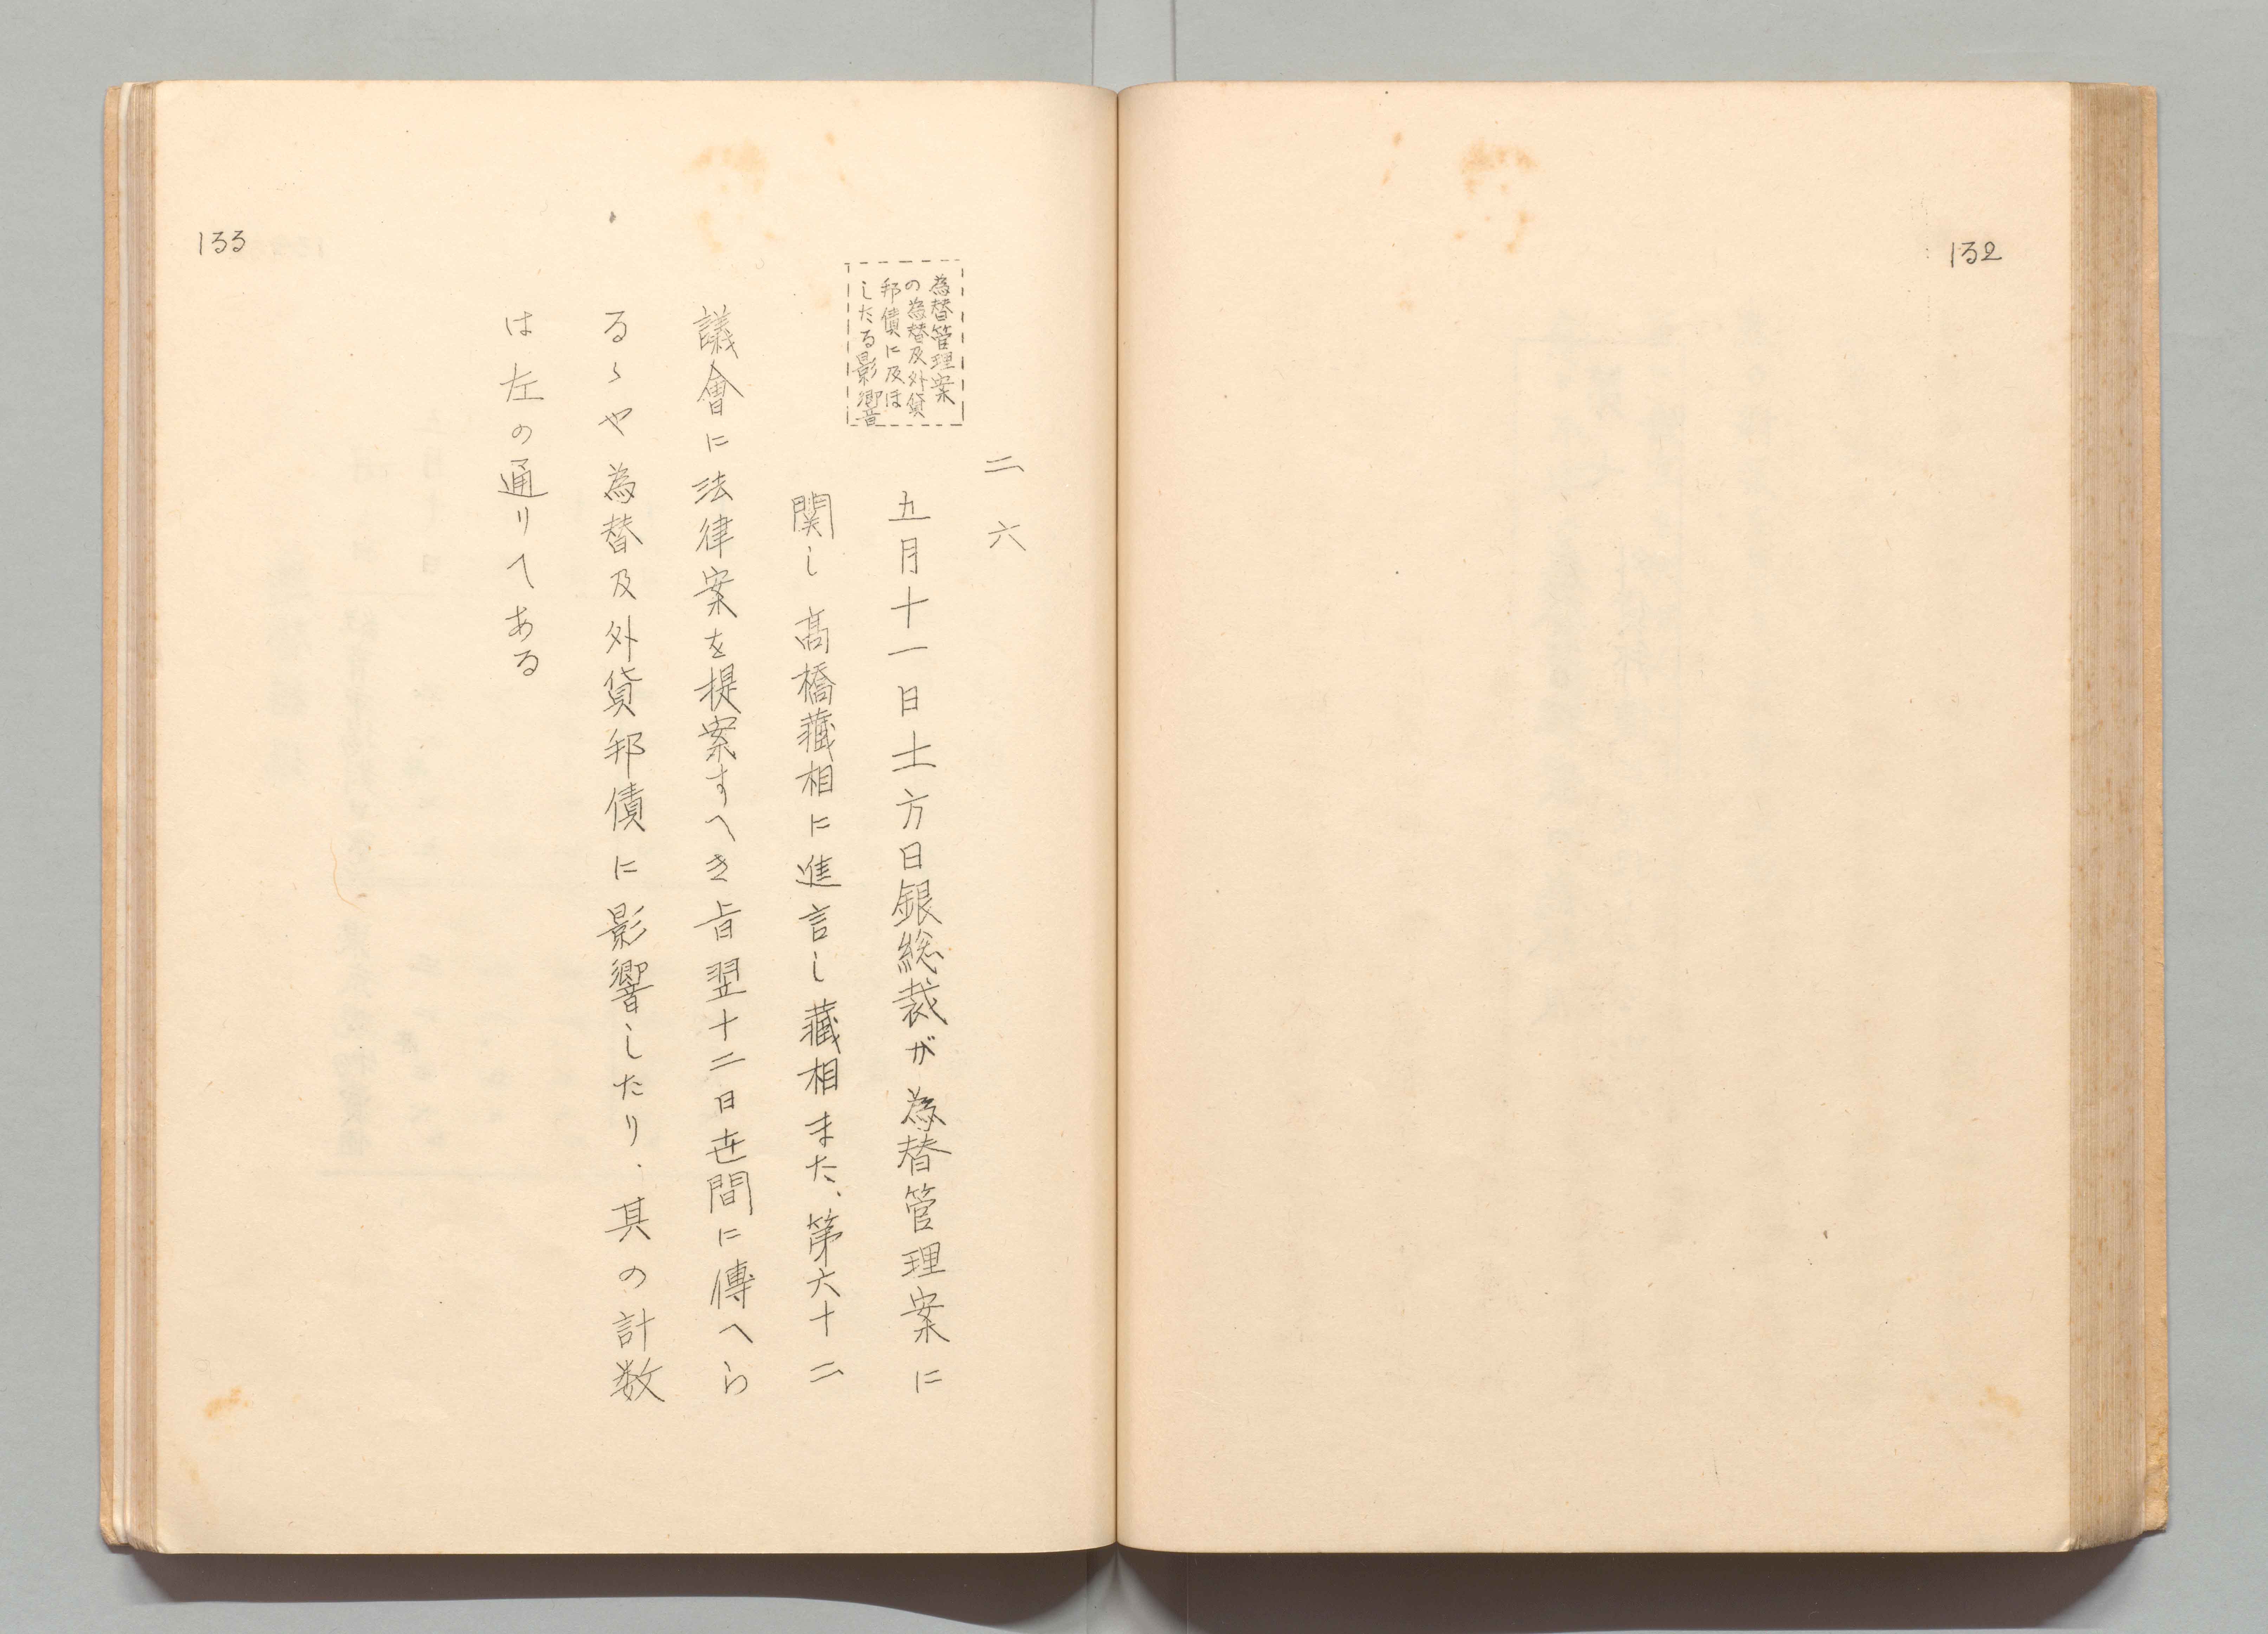 132
二六
為替管理案
の為替及外貨
邦債に及ほ
したる影響
五月十一日土方日銀総裁が為替管理案に
関し高橋藏相に進言し藏相また、第六十二
議會に法律案を提案すへき旨翌十二日世間に傳へら
るゝや為替及外貨邦債に影響したり、其の計数
は左の通りてある
133